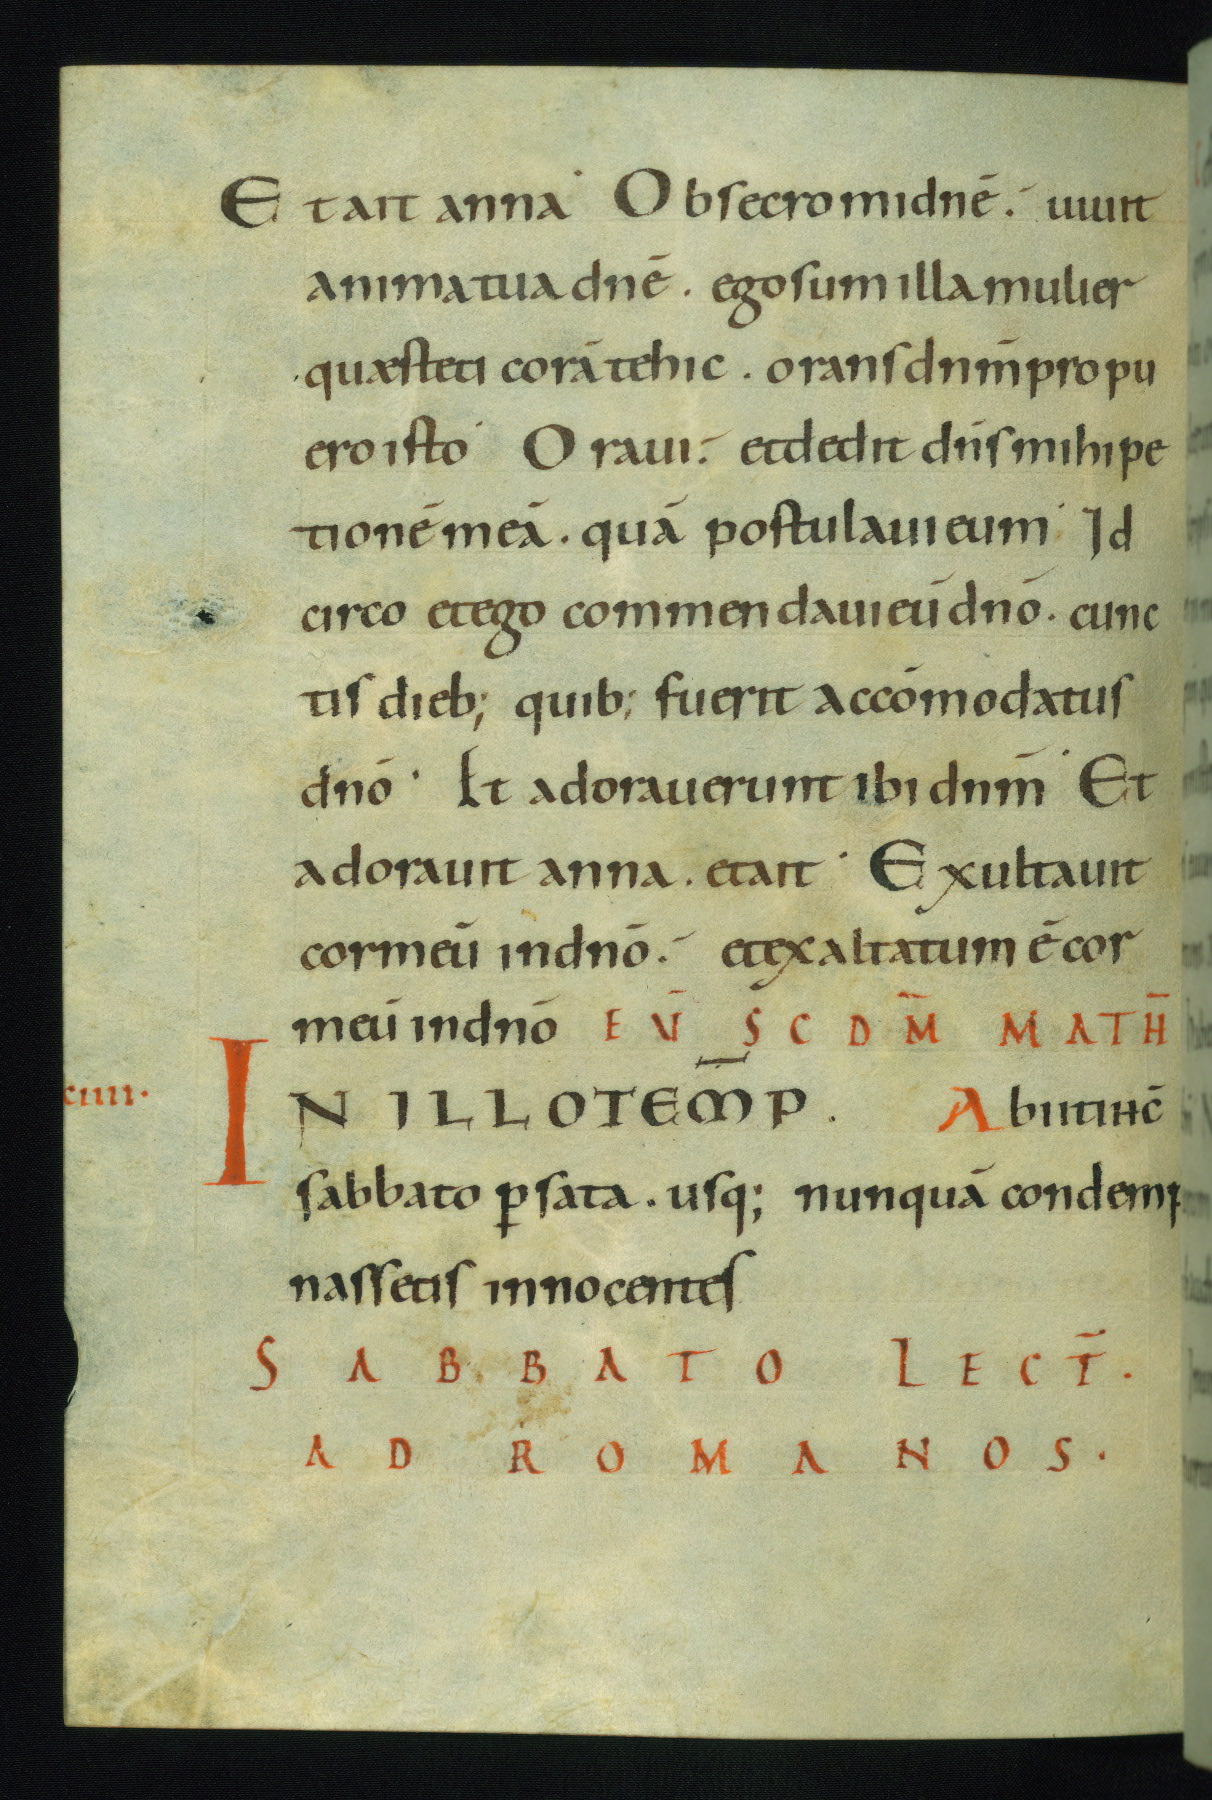 Et ait anna· Obsecro mi dnē·́ uiuit
anima tua dnē. ego sum illa mulier
quæ steti corā te hic. orans dnm̄ pro pu
ero isto· Oraui·́ et dedit dn̄s mihi pe
tionē meā. quā postulaui eum· Id
circo et ego commendaui eū dnō. cunc
tis dieb; quib; fuerit accōmodatus
dnō· Et adorauerunt ibi dnm̄· Et
adorauit anna. et ait· Exultauit
cor meū in dnō·́ et exaltatum ē cor
meū in dnō EVN̄ S̄CDM̄ MATH̄
ciiii· IN ILLO TEM̄P. Abiit ih̄c
sabbato p̱ sata. usq; nunquā condemp
nassetis innocentes
SABBATO LECT̄.
AD ROMANOS.